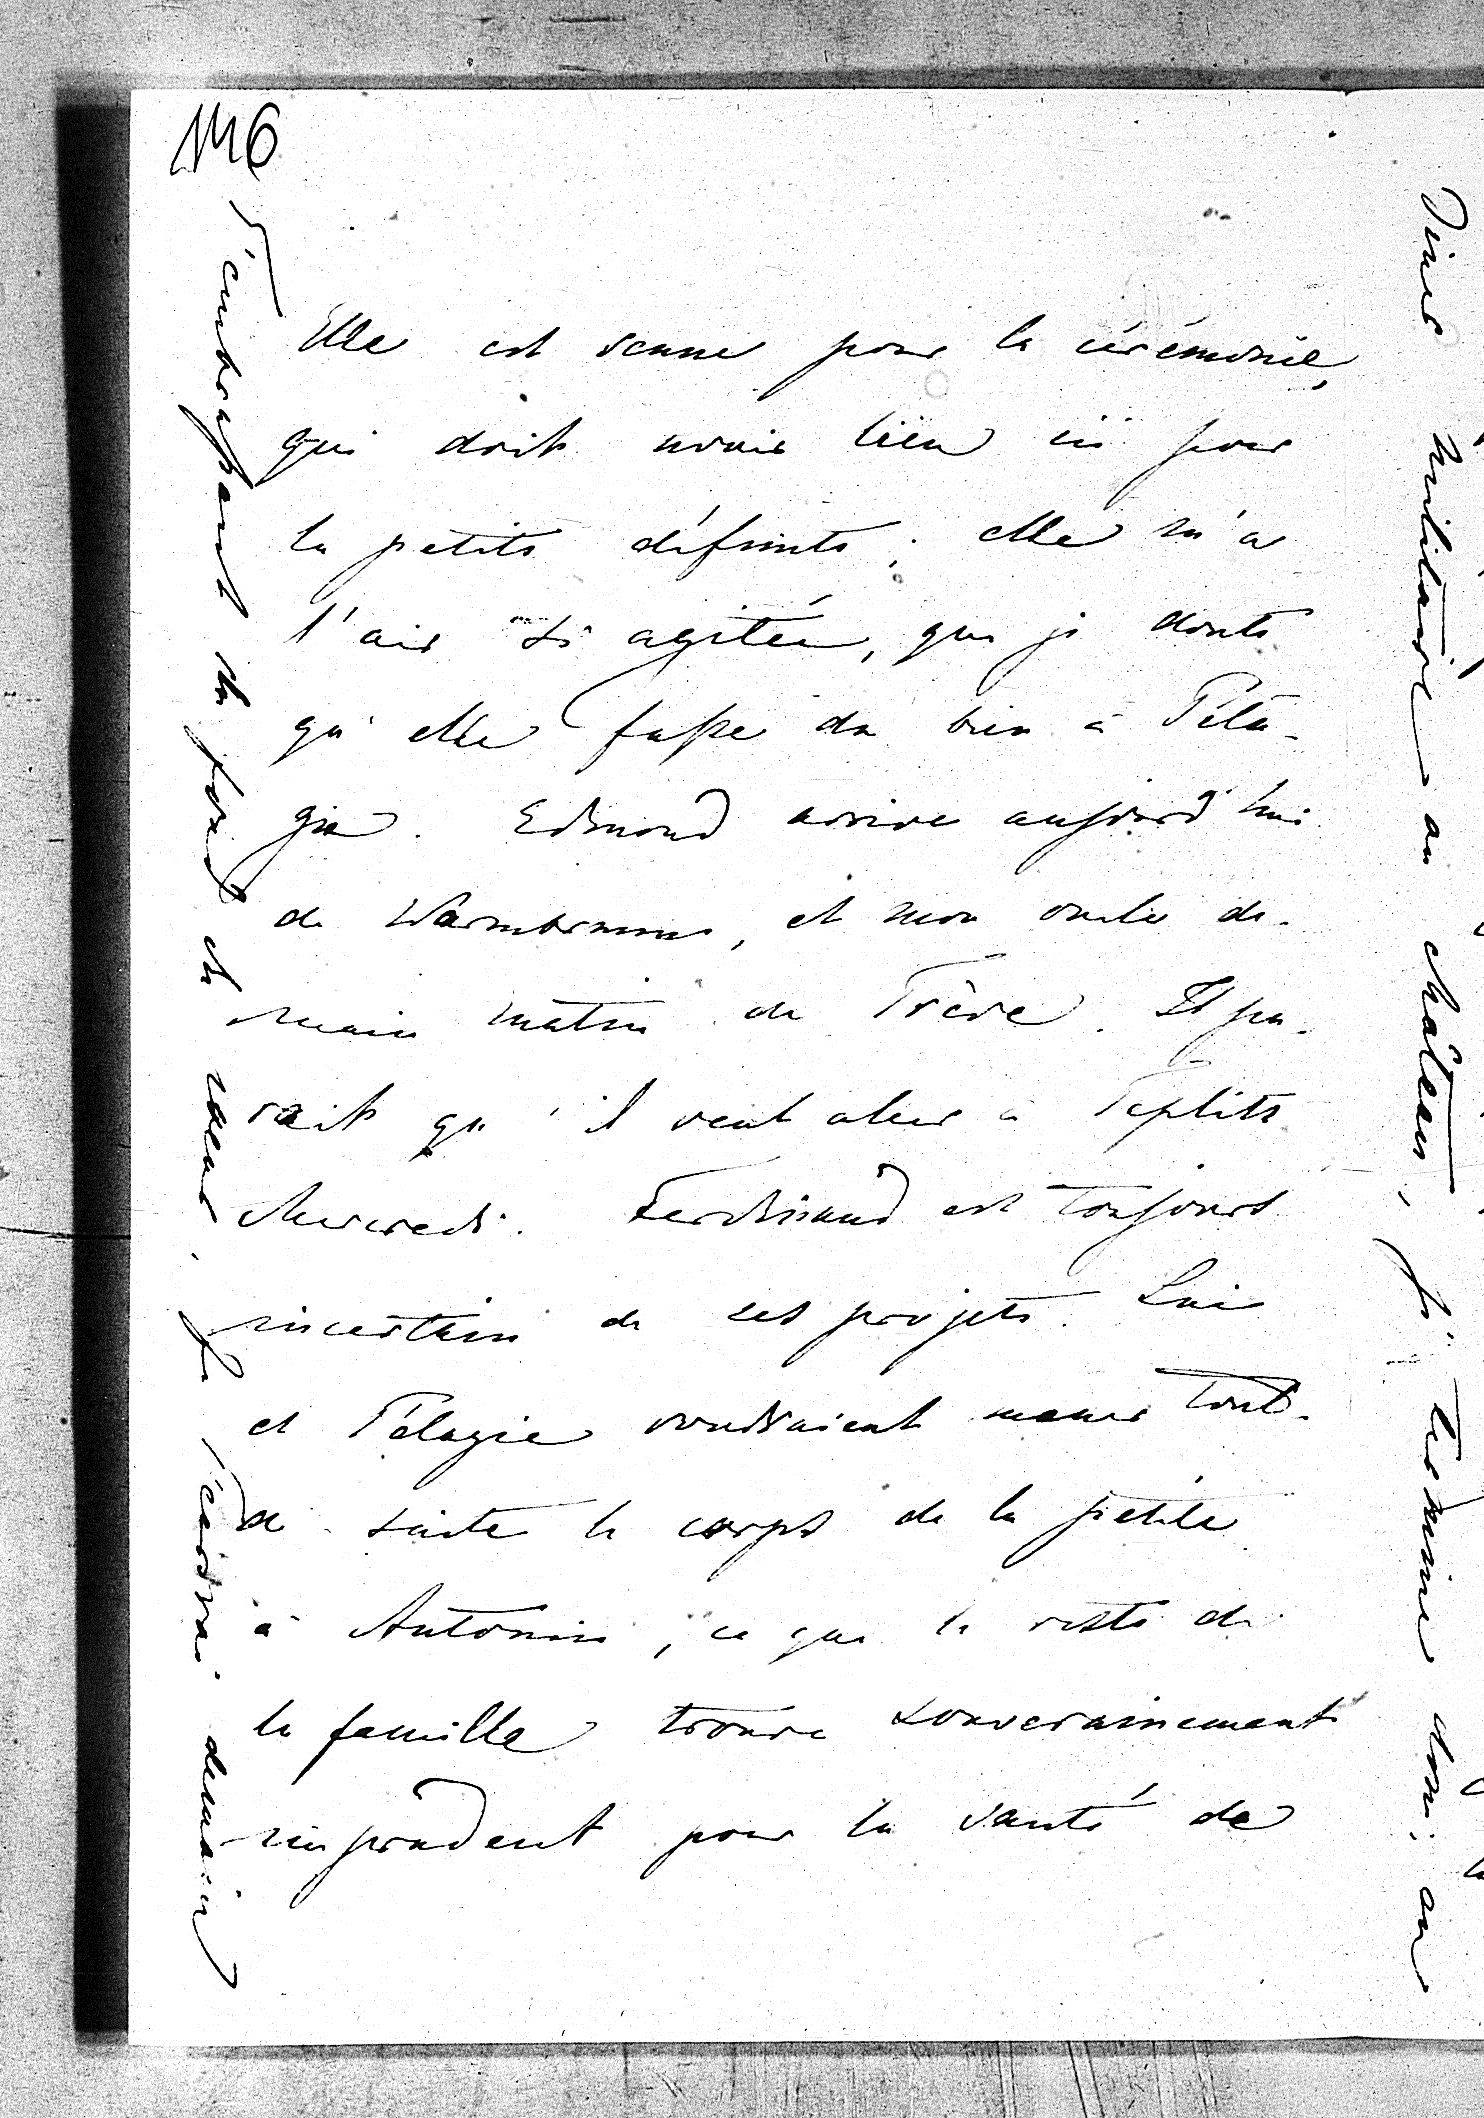 146
Elle est venue pour la cérémonie,
qui doit avoir lieu ici pour
la petite défunte; elle m'a
l'air si agitée, que je doute
qu'elle fasse du bien à Péla-
gie. Edmond arrive aujourd'hui
de Warmbrunn, et mon oncle de-
main matin de Trève. Il pa-
rait qu'il veut aller à Teplitz
Mercredi. Ferdinand est toujours
incertain de ses projets. Lui
et Pélagie voudraient mener tout-
de suite le corps de la petite
à Antonin, ce que le reste de
la famille trouve souverainement
imprudent pour la santé de
t'embrassant du fond du cœur. Je t'écrirai demain
Diner militaire au château, je termine donc; en